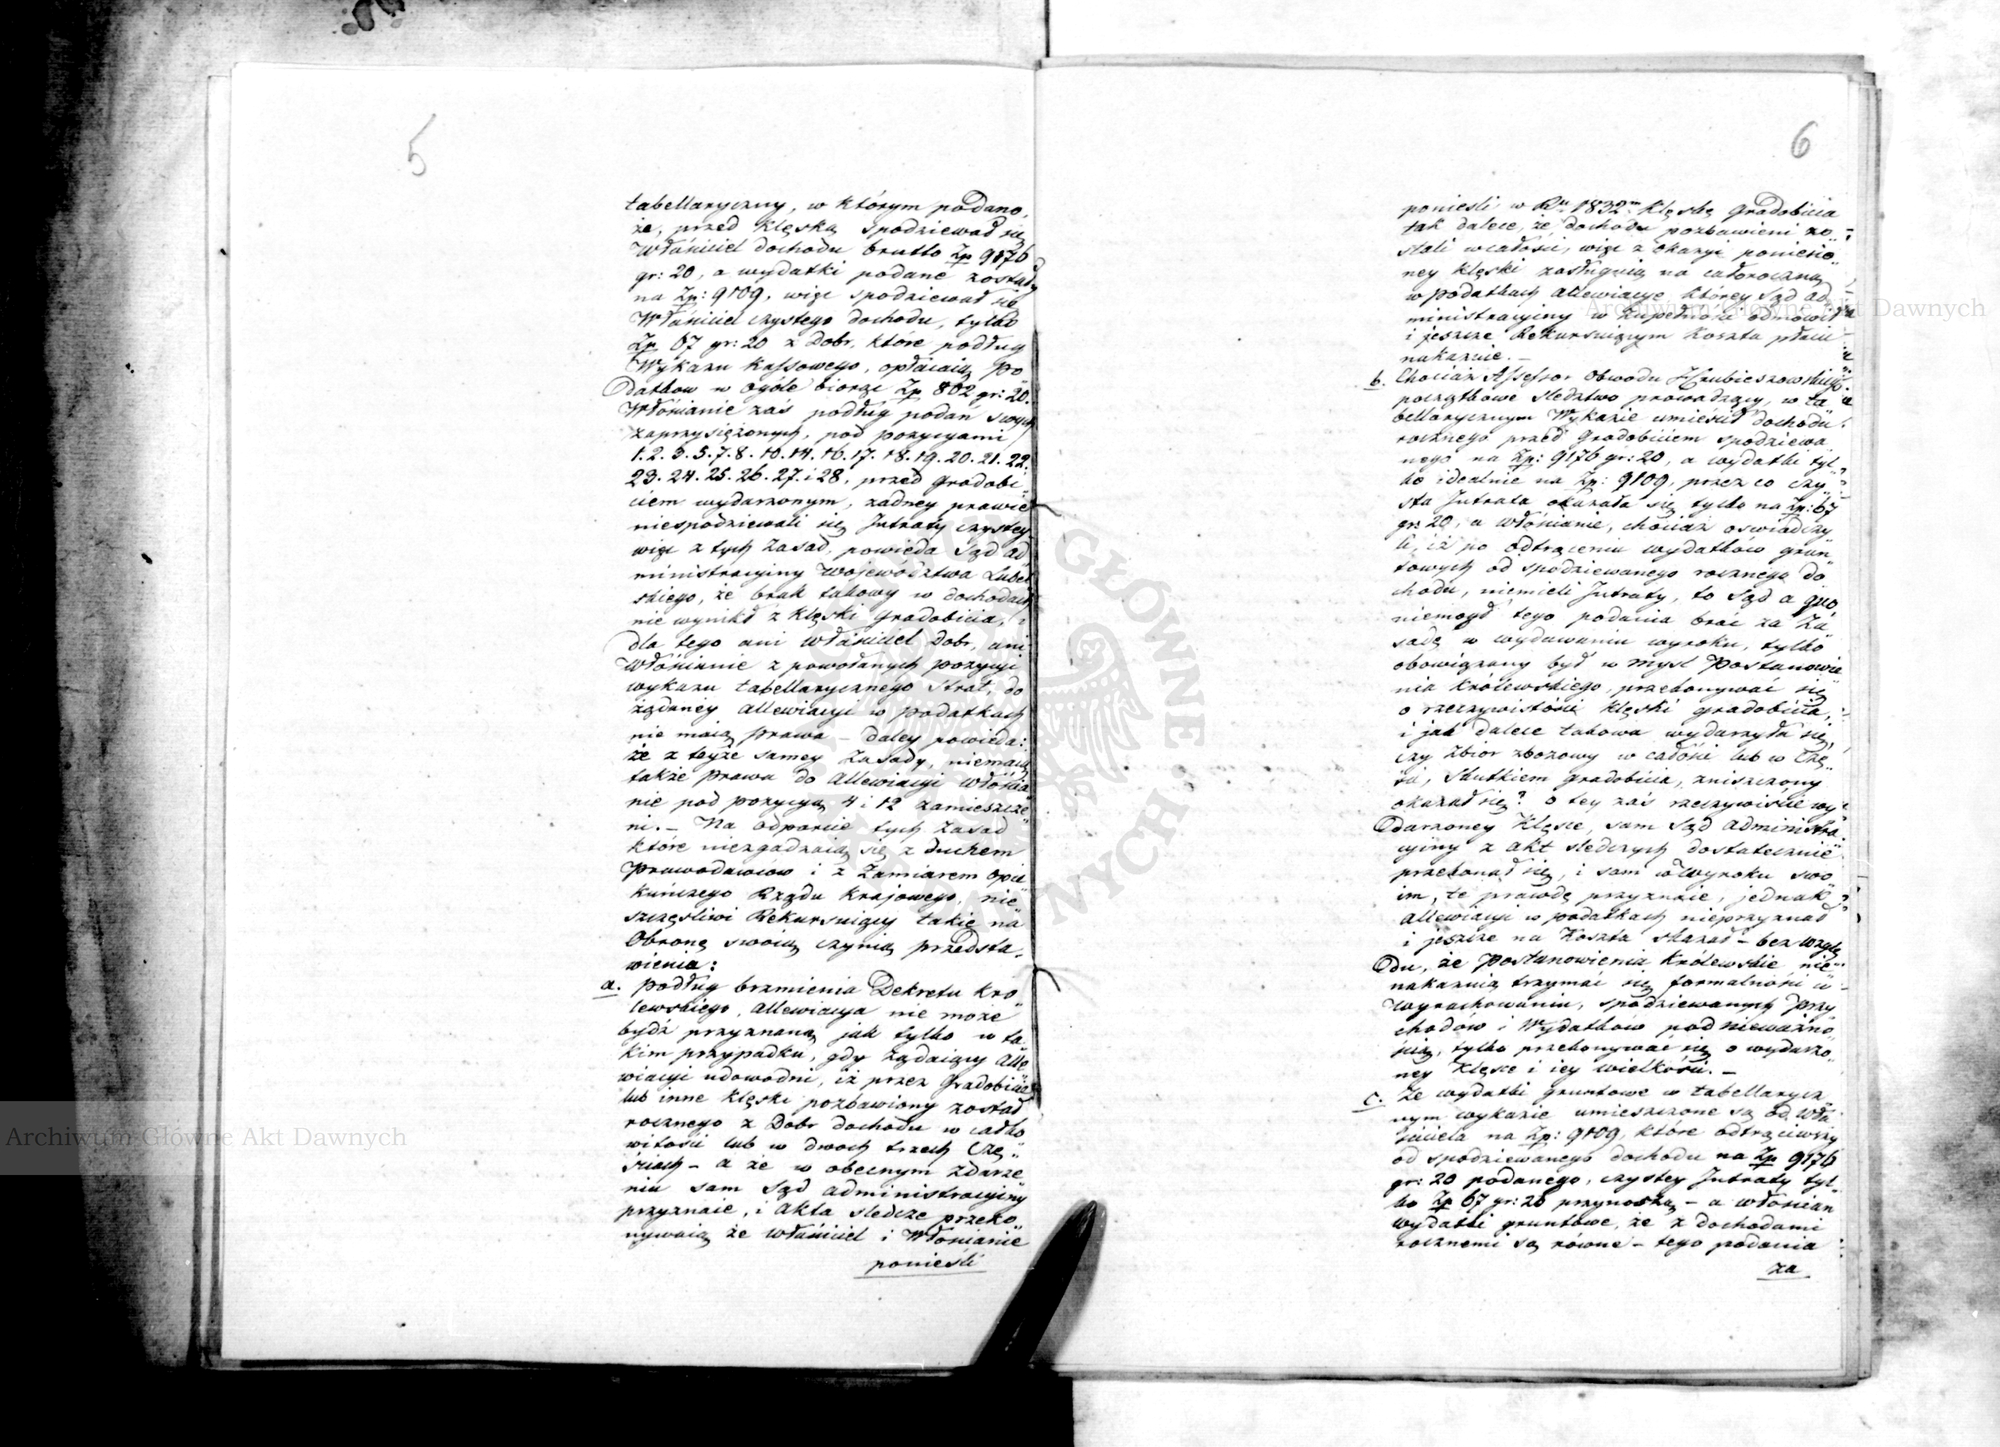 5
tabellaryczny, w którym podano,
że, przed klęską spodziewał się
Właściciel dochodu brutto Zp 9176
gr: 20, a wydatki podane zostały
na Zp: 9109, więc spodziewał się
Właściciel czystego dochodu, tylko
Zp 67 gr: 20 z Dobr, które podług
Wykazu Kassowego, opłacaią Po
datkow w ogóle biorąc Zp 802 gr: 20.
Włościanie zaś podług podań swych
zaprzysiężonych, pod pozycyami
1. 2. 3. 5. 7. 8. 10. 14. 16. 17. 18. 19. 20. 21. 22.
23. 24. 25. 26. 27. i 28, przed Gradobi
ciem wydarzonym, żadney prawie
niespodziewali się Jntraty czystey
więc z tych zasad, powieda Sąd ad
ministracyiny Województwa Lubel
skiego, że brak takowy w dochodach
nie wynikł z klęski Gradobicia, i
dla tego ani właściciel Dobr, ani
Włościanie z powołanych pozycyi
wykazu tabellarycznego strat, do
żądaney allewiacyi w podatkach
nie maią prawa – daley powieda:
że z teyże samey zasady, niemaią
także prawa do allewiacyi włościa
nie pod pozycyą 4 i 12 zamieszcze
ni. – Na odparcie tych zasad
które niezgadzaią się z duchem
Prawodawców i z zamiarem opie
kuńczego Rządu Krajowego, nie
szczęśliwi Rekursuiący takie na
Obronę swoią czynią przedsta„
wienia:
a. Podług brzmienia Dekretu Kro„
lewskiego, allewiacya nie może
bydź przyznaną jak tylko w ta
kim przypadku, gdy żądaiący alle
wiacyi udowodni, iż przez Gradobicie
lub inne klęski pozbawiony został
rocznego z Dobr dochodu w całko
witości lub w dwoch trzech Czę„
ściach – a że w obecnym zdarze
niu sam Sąd administracyiny
przyznaie, i akta śledcze przeko
nywaią że właściciel i Włościanie
ponieśli
6
ponieśli w Ru 1832m Klęskę Gradobicia
tak dalece, że, dochodu pozbawieni zo
stali w całości, więc z okazyi poniesio
ney klęski zasługuią na całoroczną
w podatkach allewiacyę którey Sąd ad
ministracyiny w zupełności odmówił
i jeszcze Rekursuiącym Koszta płacić
nakazuie. –
b. Chociaż Assessor Obwodu Hrubieszowskiego
początkowe śledztwo prowadzący, w ta
bellarycznym Wykazie umieścił dochodu
rocznego przed Gradobiciem spodziewa
nego na Zp: 9176 gr: 20, a wydatki tyl„
ko idealnie na Zp: 9109, przez co czy
sta Jntrata okazała się tylko na Zp: 67
gr: 20, a włościanie, chociaż oswiadczy
li, iż po odtrąceniu wydatków grun„
towych od spodziewanego rocznego do
chodu, niemieli Jntraty, to Sąd a quo,
niemógł tego podania brać za Za
sadę w wydawaniu wyroku, tylko
obowiązany był w myśl Postanowie
nia Królewskiego, przekonywać się
o rzeczywistości klęski gradobicia,
i jak dalece takowa wydarzyła się,
czy zbior zbożowy w całości lub w Czę„
ści, Skutkiem gradobicia, zniszczony
okazał się? o tey zaś rzeczywiście wy
darzoney Klęsce, sam Sąd administra
cyiny z akt śledczych dostatecznie
przekonał się, i sam w Wyroku swo
im, tę prawdę przyznaie, jednak
allewiacyi w podatkach nieprzyznał
i jeszcze na Koszta skazał – bez wzglę
du, że Postanowienia Królewskie nie„
nakazuią trzymać się formalności w
wyrachowaniu, spodziewanych Przy
chodów i Wydatków pod nieważno„
ścią, tylko przekonywać się o wydarzo„
ney Klęsce i iey wielkości. –
c. Że wydatki gruntowe w tabellarycz
nym wykazie umieszczone są od Wła
ściciela na Zp: 9109, które odtrąciwszy
od spodziewanego dochodu na Zp 9176
gr: 20 podanego, czystey Jntraty tyl„
ko Zp 67 gr: 20 przynoszą – a włościan
wydatki gruntowe, że z dochodami
rocznemi są równe – tego podania
za
Archiwum Główne Akt Dawnych
Archiwum Główne Akt Dawnych